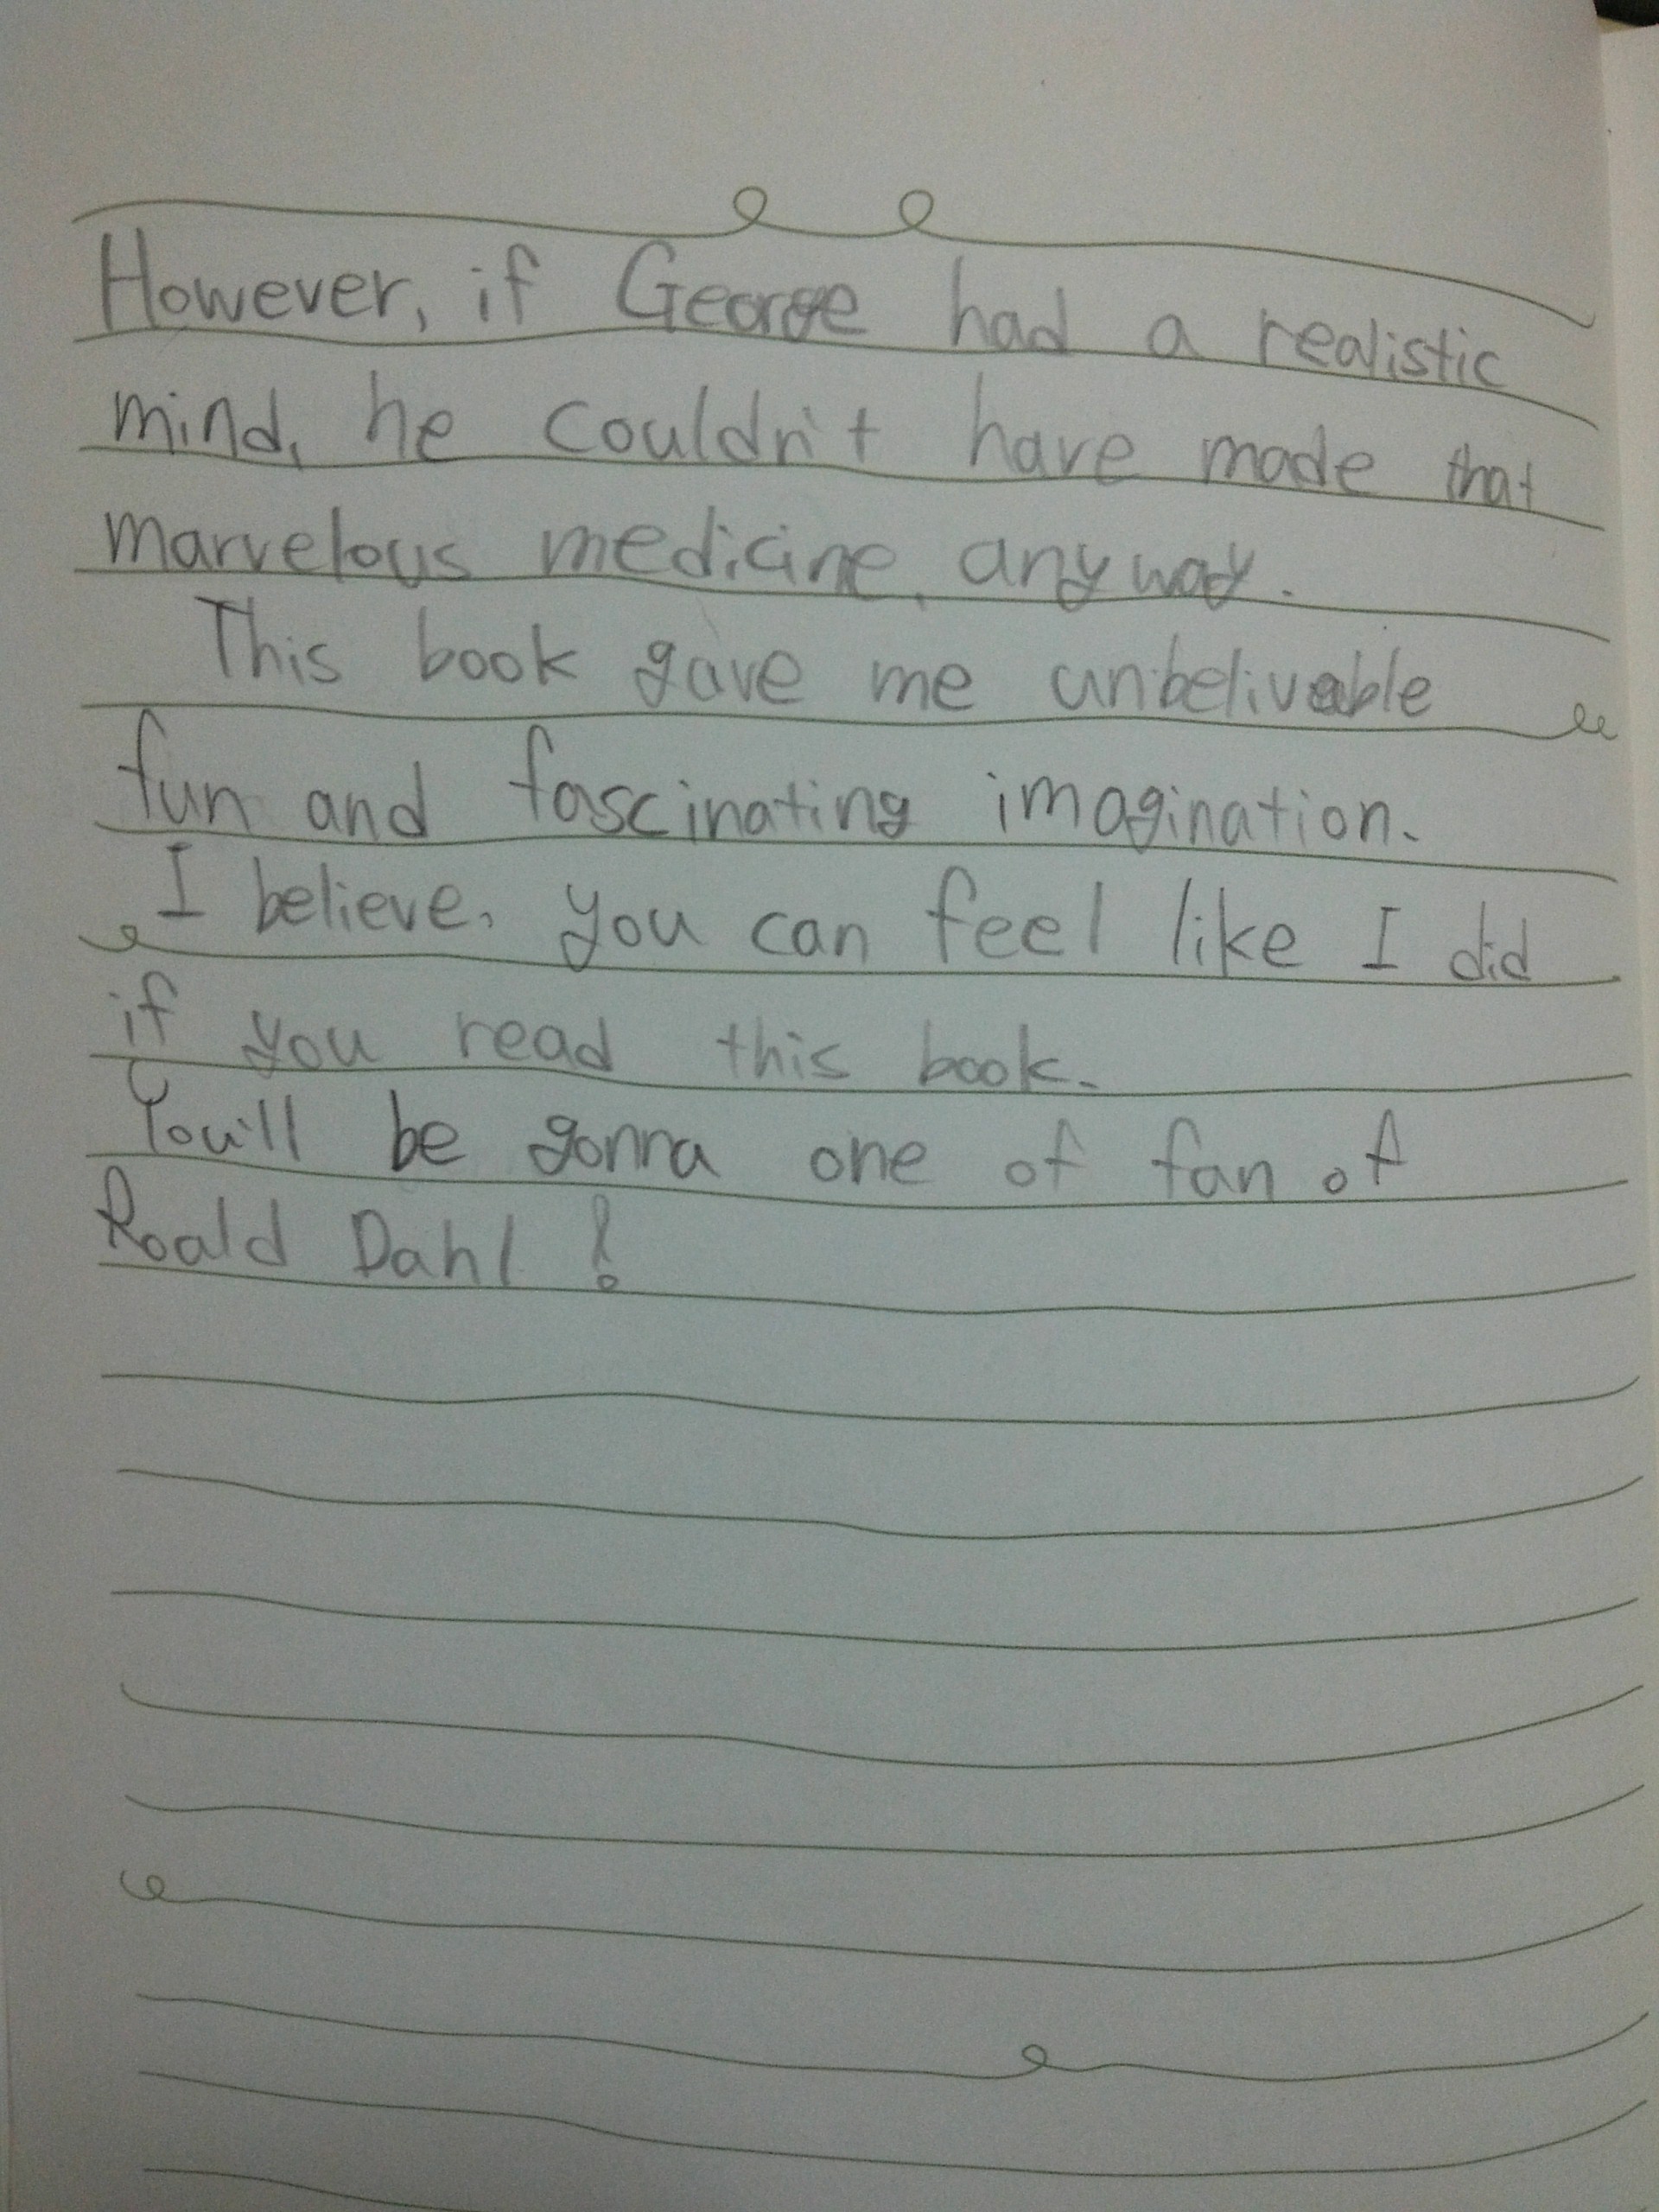 However, if George had a realistic
mind, he couldn't have made that
marvelous medicine, anyway.
This book gave me unbelivable
fun and fascinating imagination.
I believe, you can feel like I did
if you read this book.
You'll be gonna one of fan of
Roald Dahl !